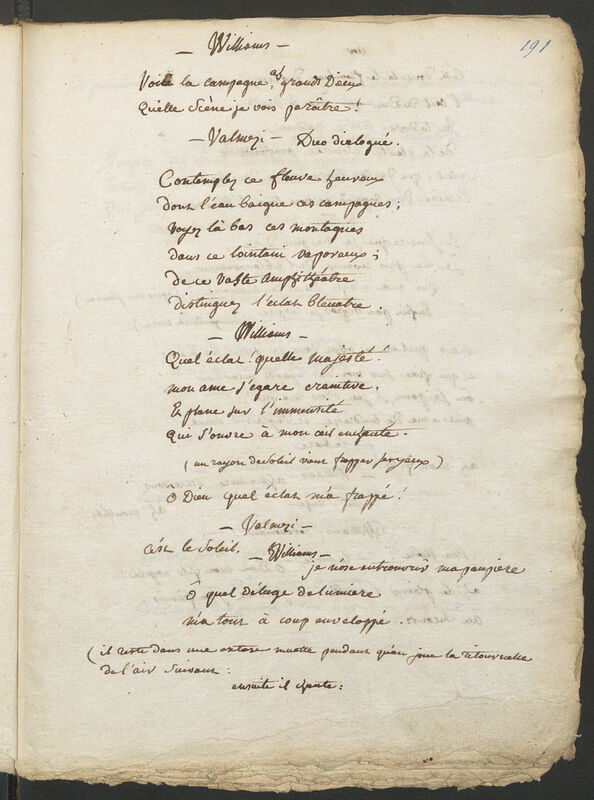 191
— Williams —
Voilà la campagne, ah, grands Dieux
Quelle Scène je vois paraître!
— Valmozi — Duo dialogué.
Contemplez ce fleuve heureux
dont l'eau baigne ces campagnes;
Voyez là bas ces montagnes
dans ce lointain vaporeux;
de ce vaste amphithéatre
distinguez l'éclat bleuatre.
— Williams —
Quel éclat! quelle majesté!
mon ame s'égare craintive,
Et plane sur l'immensité
Qui s'ouvre à mon œil
(un rayon du Soleil vient frapper ses yeux)
Ô Dieu quel éclat m'a frappé!
— Valmozi —
c'est le Soleil.
— Williams —
je n'ose entrouvrir ma paupiere
Ô quel déluge de lumiere
m'a tout à coup enveloppé.
(il reste dans une extase muette pendant qu'on joue la ritournelle
de l'air suivant:
ensuite il chante: